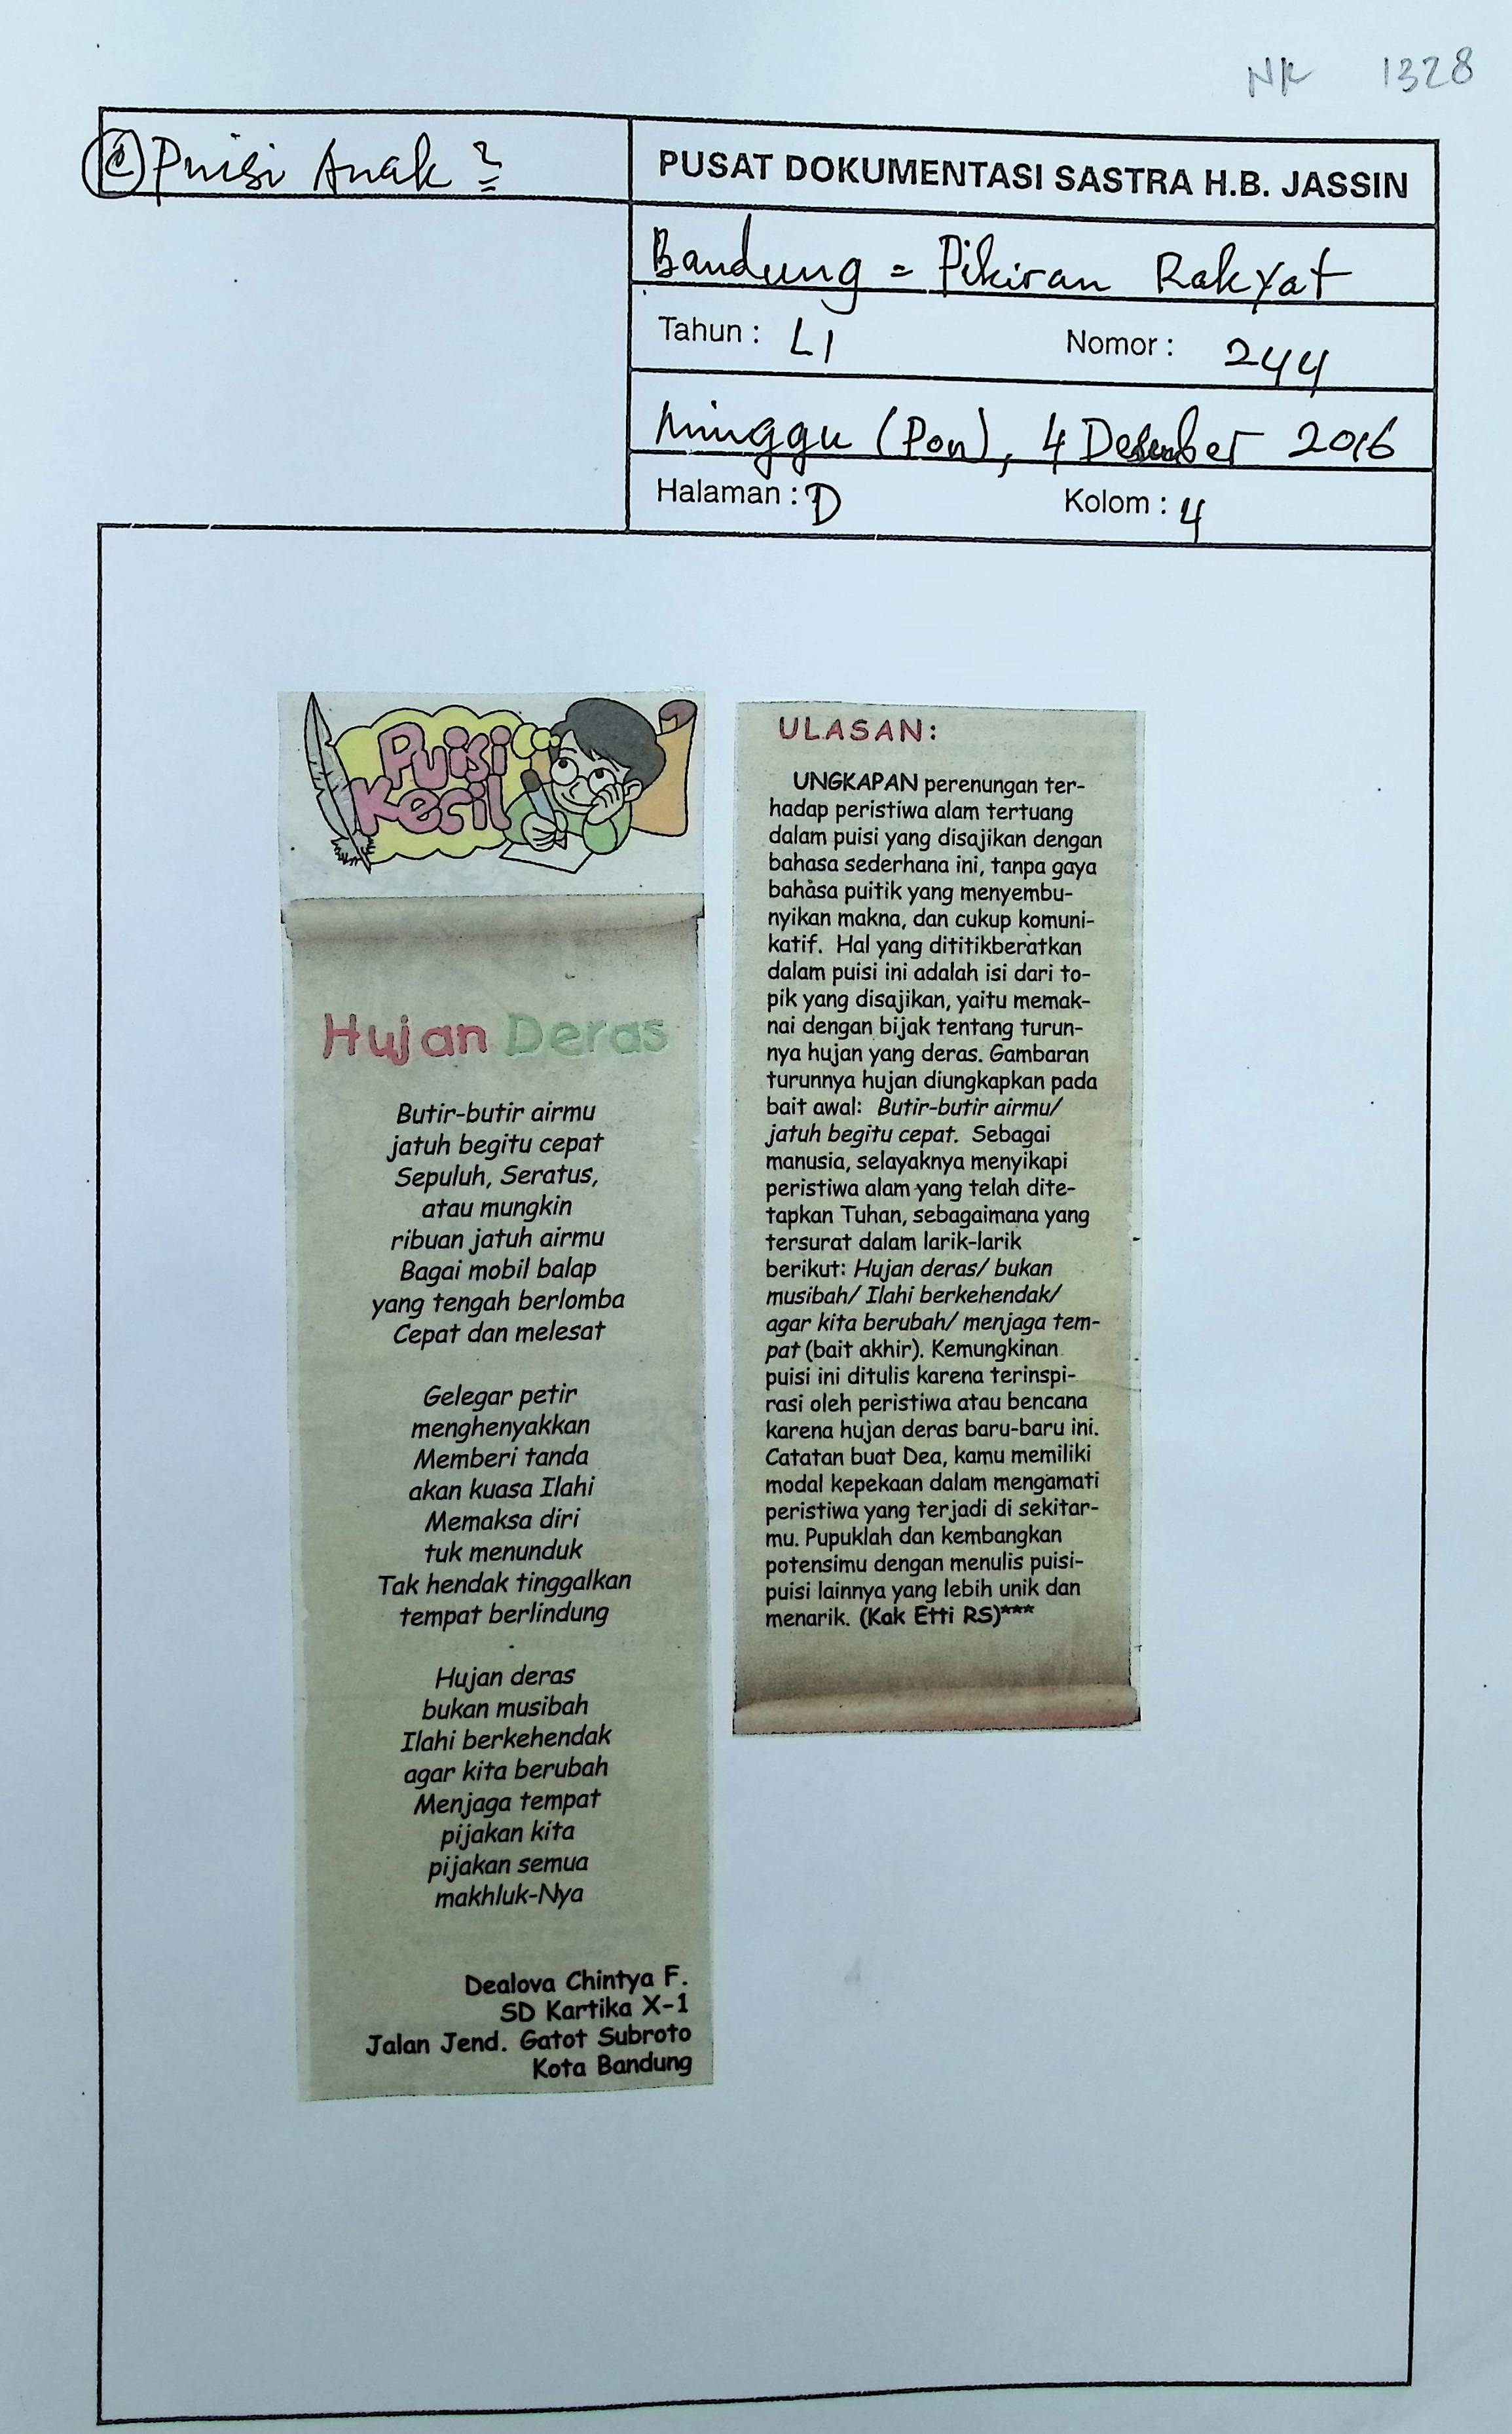 NK 1328
Puisi Anak 2
PUSAT DOKUMENTASI SASTRA H.B. JASSIN
Bandung = Pikiran Rakyat
Tahun : LI Nomor : 244
Minggu (Pon), 4 Desember 2016
Halaman : D Kolom : 4
Puisi
Kecil
Hujan Deras
Butir-butir airmu
jatuh begitu cepat
Sepuluh, Seratus,
atau mungkin
ribuan jatuh airmu
Bagai mobil balap
yang tengah berlomba
Cepat dan melesat
Gelegar petir
menghenyakkan
Memberi tanda
akan kuasa Ilahi
Memaksa diri
tuk menunduk
Tak hendak tinggalkan
tempat berlindung
Hujan deras
bukan musibah
Ilahi berkehendak
agar kita berubah
Menjaga tempat
pijakan kita
pijakan semua
makhluk-Nya
Dealova Chintya F.
SD Kartika X-1
Jalan Jend. Gatot Subroto
Kota Bandung
ULASAN:
UNGKAPAN perenungan ter-
hadap peristiwa alam tertuang
dalam puisi yang disajikan dengan
bahasa sederhana ini, tanpa gaya
bahasa puitik yang menyembu-
nyikan makna, dan cukup komuni-
katif. Hal yang dititikberatkan
dalam puisi ini adalah isi dari to-
pik yang disajikan, yaitu memak-
nai dengan bijak tentang turun-
nya hujan yang deras. Gambaran
turunnya hujan diungkapkan pada
bait awal: Butir-butir airmu/
jatuh begitu cepat. Sebagai
manusia, selayaknya menyikapi
peristiwa alam yang telah dite-
tapkan Tuhan, sebagaimana yang
tersurat dalam larik-larik
berikut: Hujan deras/ bukan
musibah/ Ilahi berkehendak/
agar kita berubah/ menjaga tem-
pat (bait akhir). Kemungkinan
puisi ini ditulis karena terinspi-
rasi oleh peristiwa atau bencana
karena hujan deras baru-baru ini.
Catatan buat Dea, kamu memiliki
modal kepekaan dalam mengamati
peristiwa yang terjadi di sekitar-
mu. Pupuklah dan kembangkan
potensimu dengan menulis puisi-
puisi lainnya yang lebih unik dan
menarik. (Kak Etti RS)***